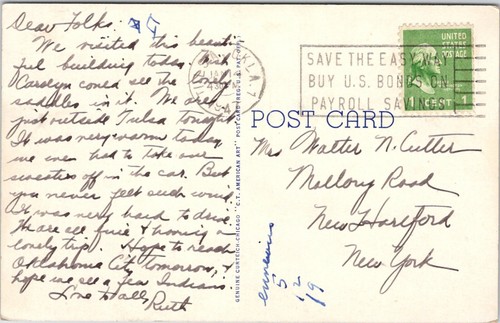 Dear Folks:
We visited this beauti-
ful building today. Wish
Carolyn could see the lovely
saddles in it. We are
just outside Tulsa tonight.
It was very warm today
we even had to take our
sweaters off in the car. But
you never felt such wind.
It was very hard to drive.
We are all fine & having a
lovely trip. Hope to reach
Oklahoma City tomorrow, &
hope we see a few Indians.
Love to all, Ruth
GENUINE CURTEICH-CHICAGO "C.T. AMERICAN ART" POST CARD
OKLA
SAVE THE EASY WAY
BUY U.S. BONDS ON
PAYROLL SAVINGS
UNITED
STATES
POSTAGE
1 CENT 1
POST CARD
Mrs Walter N. Cutter
Mallory Road
New Hartford
New York
5
12
19